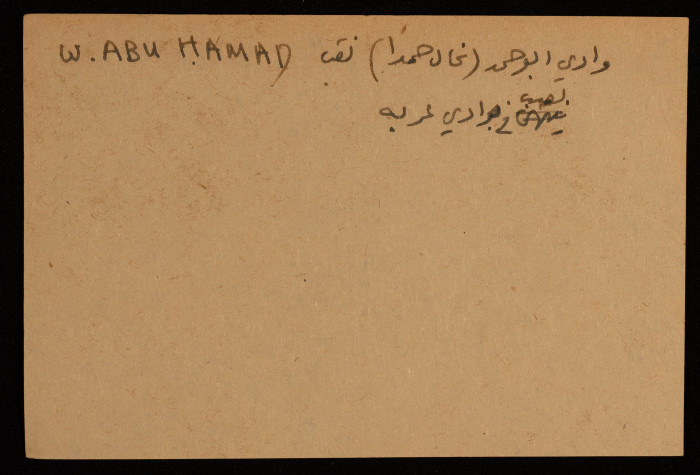 W. ABU HAMAD وادي ابو حمد (نحال حمدا) نقب
تصب في وادي عربه